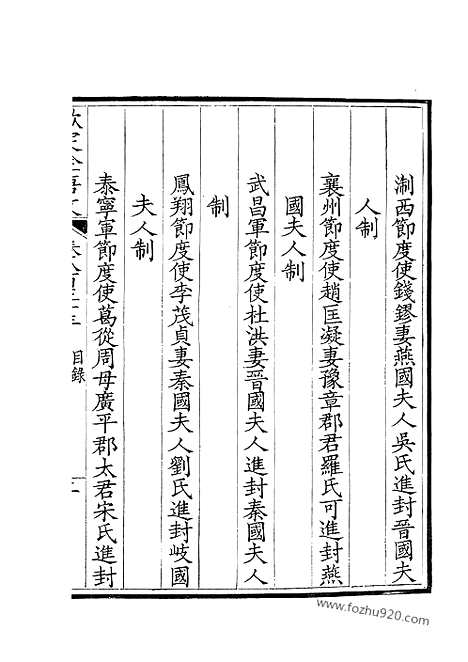 淛西節度使錢鏐妻燕國夫人吳氏進封晉國夫
人制
襄州節度使趙匡凝妻豫章郡君羅氏可進封燕
國夫人制
武昌軍節度使杜洪妻晉國夫人進封秦國夫人
制
鳳翔節度使李茂貞妻秦國夫人劉氏進封岐國
夫人制
泰寧軍節度使葛從周母廣平郡太君宋氏進封
目錄
www.fozhu920.com